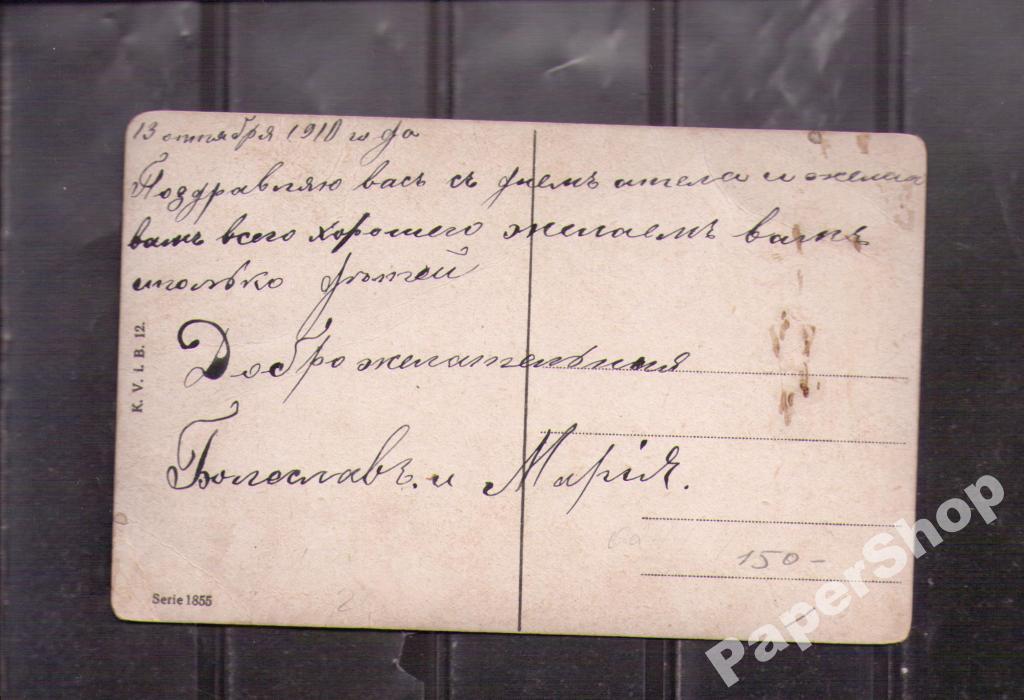 13 октября 1910 года
Поздравляю васъ съ днемъ ангела и желаю
вамъ всего хорошего желаемъ вамъ
столько
Доброжелательныя
Болеславъ. и Марія.
K. V. i. B. 12.
Serie 1855
150-
PaperShop